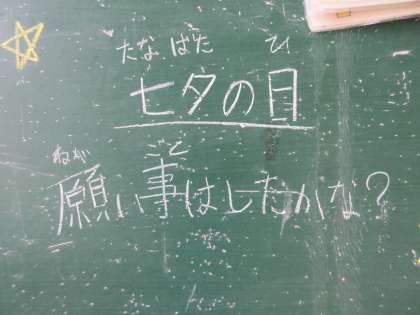 たなばた ひ
七夕の日
ねが ごと
願い事はしたかな?